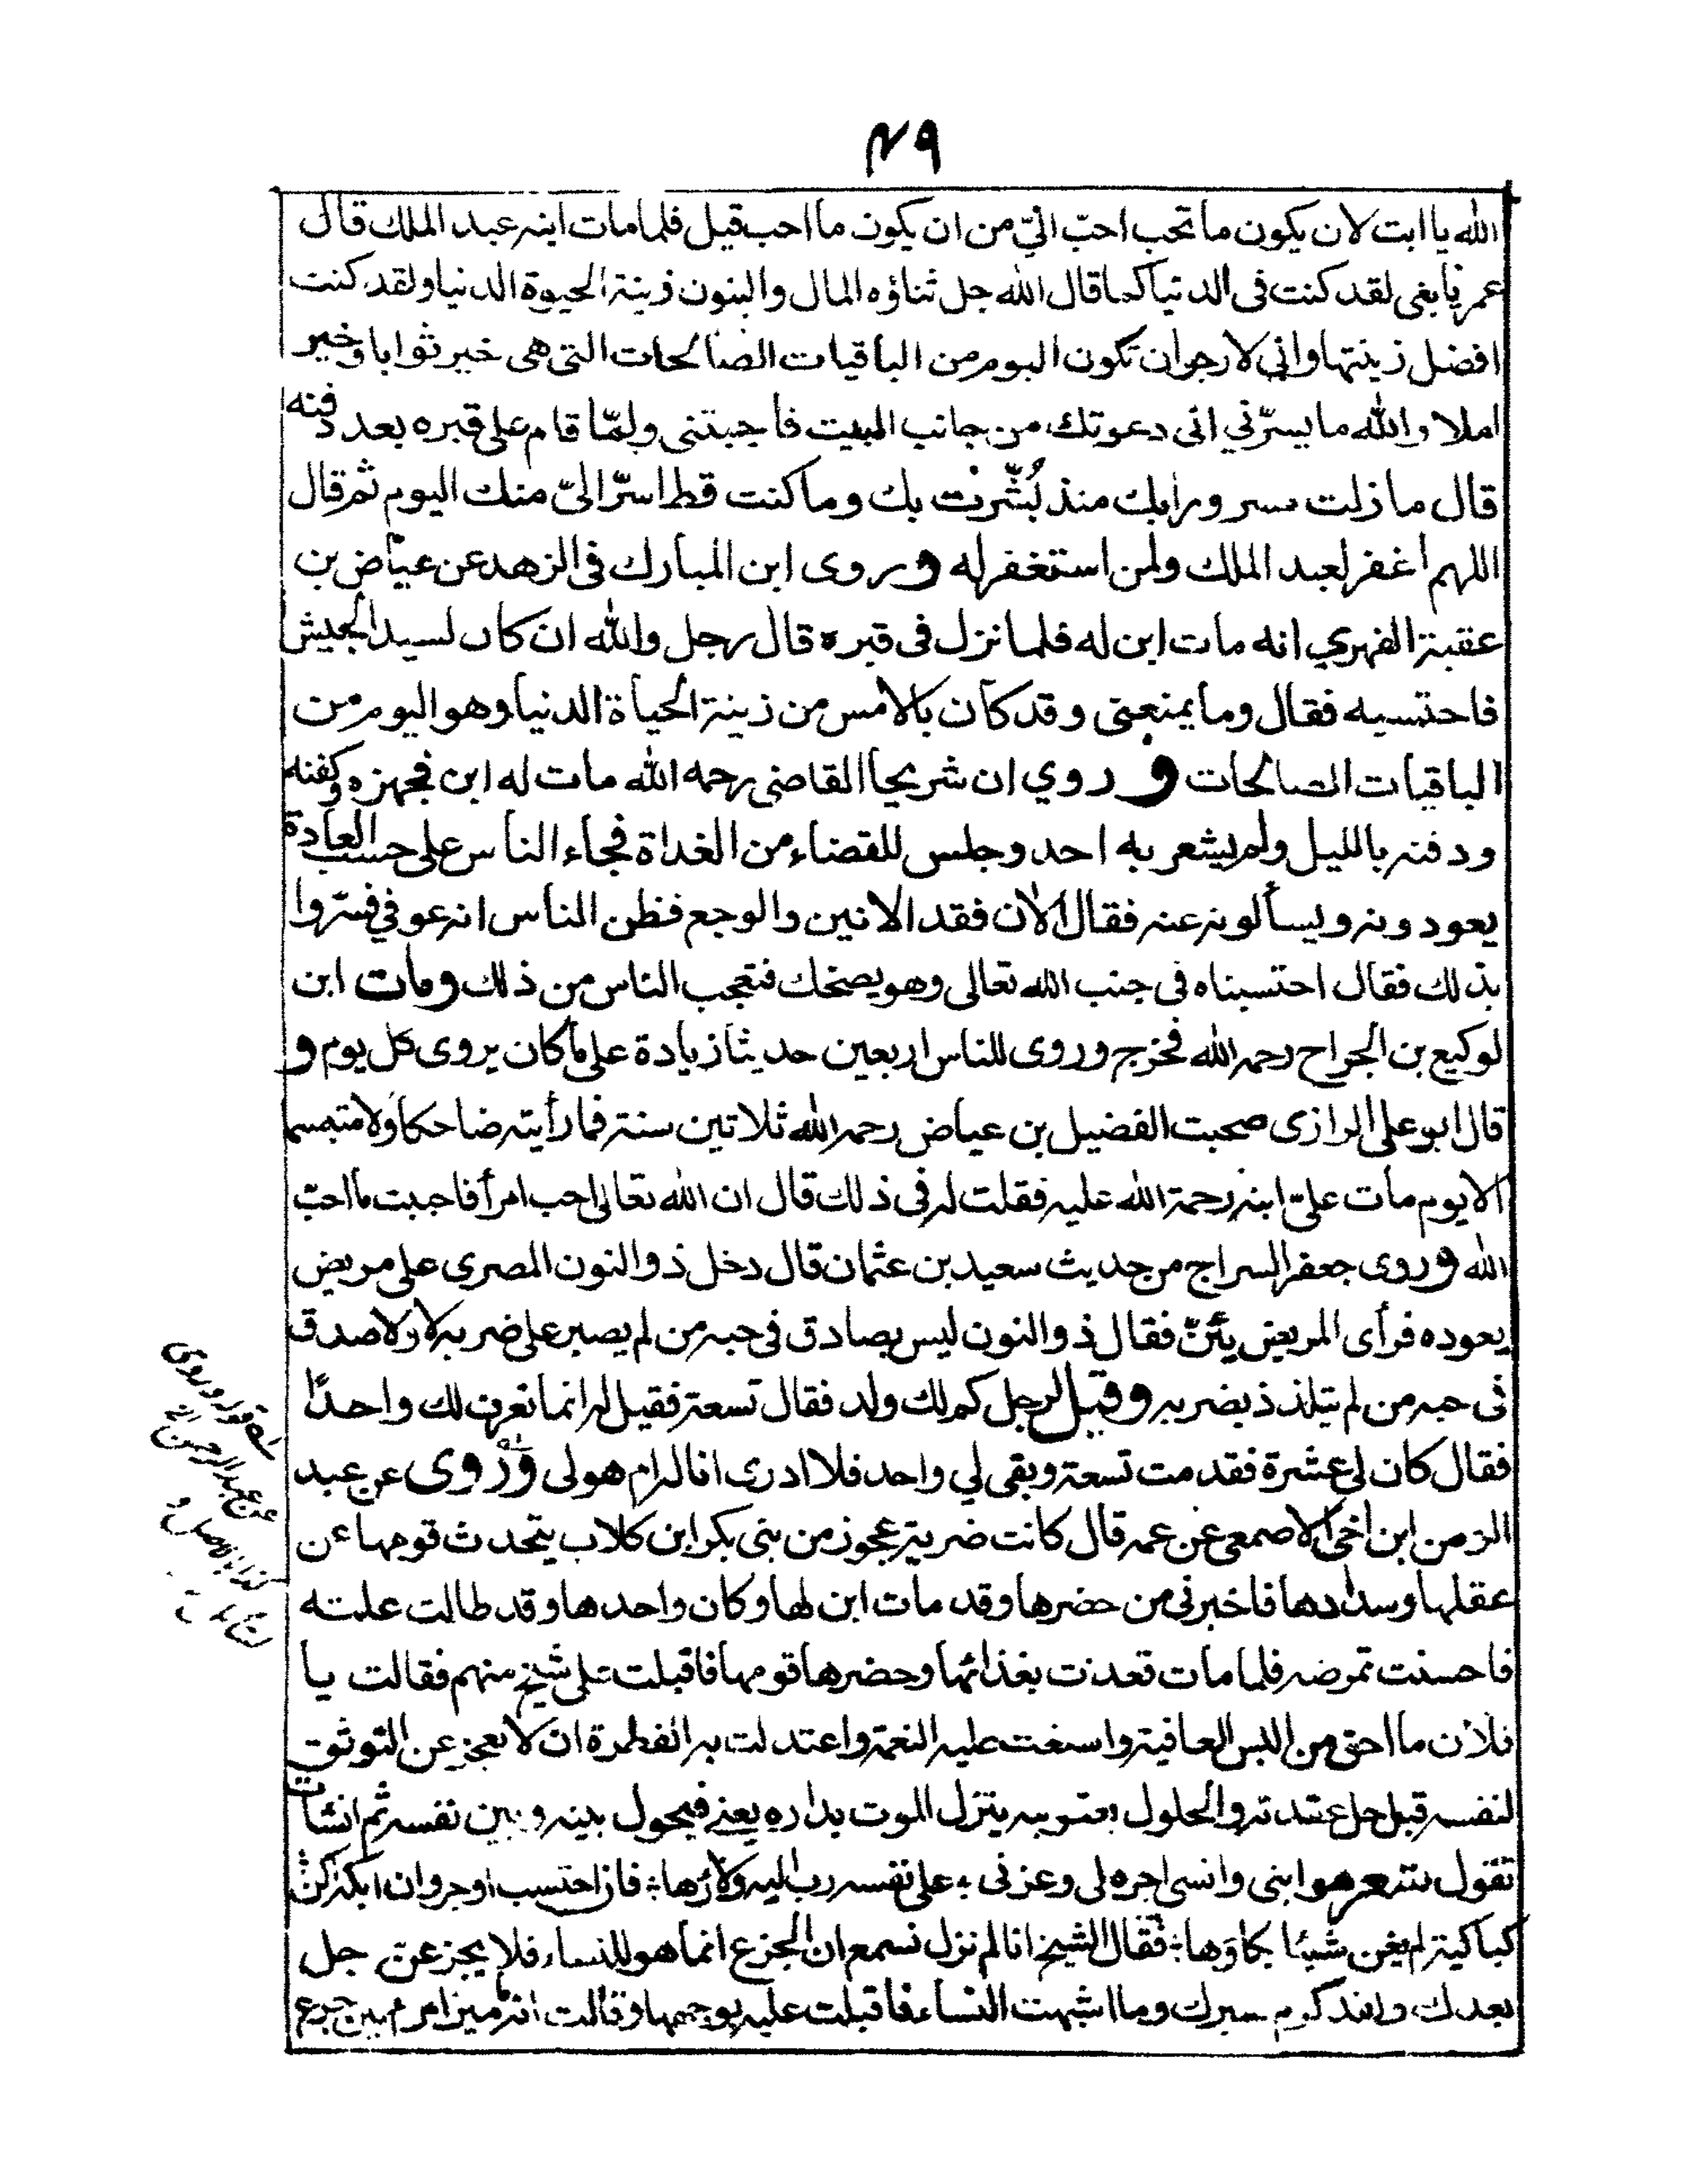 ٤٩
الله يا ابت لان يكون ما تحب احبّ اليّ من ان يكون ما احب قيل فلما مات ابنه عبد الملك قال
عمر يا بني لقد كنت في الدنيا كما قال الله جل ثناؤه المال والبنون زينة الحيوة الدنيا ولقد كنت
افضل زينتها واني لارجو ان تكون اليوم من الباقيات الصالحات التي هي خير ثوابا وخير
املا والله ما يسرّني اني دعوتك من جانب البيت فاجبتني ولمّا قام على قبره بعد دفنه
قال ما زلت مسرورا بك منذ بُشّرت بك وما كنت قط اسرّ اليّ منك اليوم ثم قال
اللهم اغفر لعبد الملك ولمن استغفر له وروى ابن المبارك في الزهد عن عياض بن
عقبة الفهري انه مات ابن له فلما نزل في قبره قال رجل والله ان كان لسيد الجيش
فاحتسبه فقال وما يمنعني وقد كان بالامس من زينة الحياة الدنيا وهو اليوم من
الباقيات الصالحات وروي ان شريحا القاضي رحمه الله مات له ابن فجهزه وكفنه
ودفنه بالليل ولم يشعر به احد وجلس للقضاء من الغداة فجاء الناس على حسب العادة
يعودونه ويسألونه عنه فقال الآن فقد الانين والوجع فظن الناس انه عوفي فسرّوا
بذلك فقال احتسبناه في جنب الله تعالى وهو يضحك فتعجب الناس من ذلك ومات ابن
لوكيع بن الجراح رحمه الله فخرج وروى للناس اربعين حديثا زيادة على ما كان يروى كل يوم و
قال ابو على الرازى صحبت الفضيل بن عياض رحمه الله ثلاثين سنة فما رأيته ضاحكا ولا متبسما
الا يوم مات عليّ ابنه رحمة الله عليه فقلت له في ذلك قال ان الله تعالى احب امرأ فاحببت ما احبّ
الله وروى جعفر السراج من حديث سعيد بن عثمان قال دخل ذو النون المصري على مريض
يعوده فرأى المريض يئنّ فقال ذو النون ليس بصادق في حبه من لم يصبر على ضربه ولا صدق
في حبه من لم يتلذذ بضربه وقيل لرجل كم لك ولد فقال تسعة فقيل له انما نعرف لك واحدًا
فقال كان لي عشرة فقدمت تسعة وبقى لي واحد فلا ادرى انا له ام هو لى وروى عن عبد
الرحمن ابن اخي الاصمعي عن عمه قال كانت ضرية عجوز من بني بكر ابن كلاب يتحدث قومها عن
عقلها وسدادها فاخبرني من حضرها وقد مات ابن لها وكان واحدها وقد طالت علته
فاحسنت تمرضه فلما مات قعدت بغنائها وحضرها قومها فاقبلت على شيخ منهم فقالت يا
فلان ما احق من البس العافية واسبغت عليه النعمة واعتدلت به الفطرة ان لا يعجز عن التوثق
لنفسه قبل حل عقدته والحلول ينزل الموت بداره يعني فيحول بينه وبين نفسه ثم انشأت
تقول هو ابني وانسى اجره لى وعزني ؛ على نفسه رب اليه ولاؤها ؛ فان احتسب اوجر وان ابكه اكن
كباكية لم يغن شيئا بكاؤها ؛ فقال الشيخ انا لم نزل نسمع ان الجزع انما هو للنساء فلا يجزعن رجل
بعدك ولقد كرم صبرك وما اشبهت النساء فاقبلت عليه بوجهها وقالت